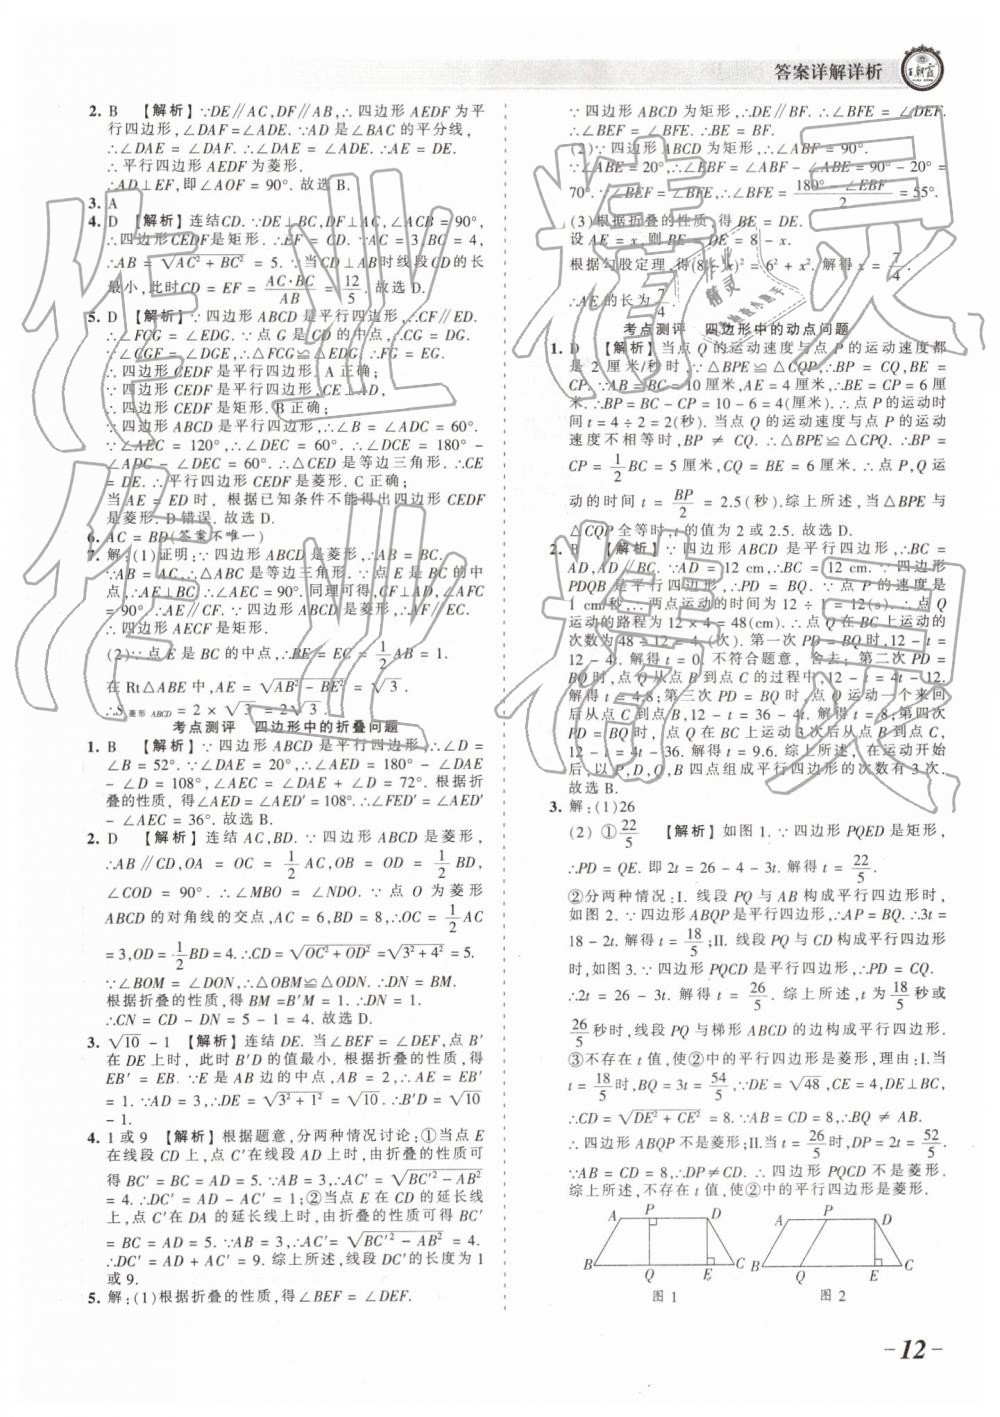 答案详解详析
王朝霞
2. B 【解析】∵DE∥AC,DF∥AB,∴四边形 AEDF 为平
行四边形,∠DAF=∠ADE. ∵AD 是∠BAC 的平分线,
∴∠DAE = ∠DAF. ∴∠DAE = ∠ADE. ∴AE = DE.
∴平行四边形 AEDF 为菱形.
∴AD⊥EF,即∠AOF = 90°. 故选 B.
3. A
4. D 【解析】连结CD. ∵DE⊥BC,DF⊥AC,∠ACB=90°,
∴四边形CEDF是矩形. ∴EF = CD. ∵AC = 3,BC = 4,
∴AB = √(AC² + BC²) = 5. ∵当CD⊥AB时线段CD的长
最小,此时CD = EF = AC·BC/AB = 12/5. 故选 D.
5. D 【解析】∵四边形 ABCD 是平行四边形,∴CF∥ED.
∴∠FCG = ∠EDG. ∵点 G 是 CD 的中点,∴CG = DG.
∵∠CGF = ∠DGE,∴△FCG≌△EDG. ∴FG = EG.
∴四边形 CEDF 是平行四边形. A 正确;
∴四边形 CEDF 是矩形. B 正确;
∵四边形 ABCD 是平行四边形,∴∠B = ∠ADC = 60°.
∵∠AEC = 120°,∴∠DEC = 60°. ∴∠DCE = 180° -
∠ADC - ∠DEC = 60°. ∴△CED 是等边三角形. ∴CE
= DE. ∴平行四边形 CEDF 是菱形. C 正确;
当 AE = ED 时, 根据已知条件不能得出四边形 CEDF
是菱形. D 错误. 故选 D.
6. AC = BD(答案不唯一)
7. 解:(1)证明:∵四边形 ABCD 是菱形,∴AB = BC.
∵AB = AC,∴△ABC 是等边三角形. ∵点 E 是 BC 的中
点,∴AE⊥BC. ∴∠AEC = 90°. 同理可得,CF⊥AD,∠AFC
= 90°. ∴AE∥CF. ∵四边形 ABCD 是菱形,∴AF∥EC.
∴四边形 AECF 是矩形.
(2)∵点 E 是 BC 的中点,∴BE = EC = 1/2 AB = 1.
在 Rt△ABE 中,AE = √(AB² - BE²) = √3.
∴S菱形ABCD = 2 × √3 = 2√3.
考点测评 四边形中的折叠问题
1. B 【解析】∵四边形 ABCD 是平行四边形,∴∠D =
∠B = 52°. ∵∠DAE = 20°,∴∠AED = 180° - ∠DAE
- ∠D = 108°,∠AEC = ∠DAE + ∠D = 72°. 根据折
叠的性质, 得∠AED = ∠AED′ = 108°. ∴∠FED′ = ∠AED′
- ∠AEC = 36°. 故选 B.
2. D 【解析】连结 AC,BD. ∵四边形 ABCD 是菱形,
∴AB∥CD,OA = OC = 1/2 AC,OB = OD = 1/2 BD,
∠COD = 90°. ∴∠MBO = ∠NDO. ∵点 O 为菱形
ABCD 的对角线的交点,AC = 6,BD = 8,∴OC = 1/2 AC
= 3,OD = 1/2 BD = 4. ∴CD = √(OC² + OD²) = √(3² + 4²) = 5.
∵∠BOM = ∠DON,∴△OBM≌△ODN. ∴DN = BM.
根据折叠的性质,得 BM = B′M = 1. ∴DN = 1.
∴CN = CD - DN = 5 - 1 = 4. 故选 D.
3. √10 - 1 【解析】连结 DE. 当∠BEF = ∠DEF,点 B′
在 DE 上时, 此时 B′D 的值最小. 根据折叠的性质,得
EB′ = EB. ∵E 是 AB 边的中点,AB = 2,∴AE = EB′
= 1. ∵AD = 3,∴DE = √(3² + 1²) = √10. ∴B′D = √10
- 1.
4. 1 或 9 【解析】根据题意,分两种情况讨论:①当点 E
在线段 CD 上,点 C′在线段 AD 上时,由折叠的性质可
得 BC′ = BC = AD = 5. ∵AB = 3,∴AC′ = √(BC′² - AB²)
= 4. ∴DC′ = AD - AC′ = 1;②当点 E 在 CD 的延长线
上, 点 C′在 DA 的延长线上时,由折叠的性质可得 BC′
= BC = AD = 5. ∵AB = 3,∴AC′ = √(BC′² - AB²) = 4.
∴DC′ = AD + AC′ = 9. 综上所述,线段 DC′的长度为 1
或 9.
5. 解:(1)根据折叠的性质,得∠BEF = ∠DEF.
∵四边形 ABCD 为矩形,∴DE∥BF. ∴∠BFE = ∠DEF.
∴∠BEF = ∠BFE. ∴BE = BF.
(2)∵四边形 ABCD 为矩形,∴∠ABF = 90°.
∵∠ABE = 20°,∴∠EBF = ∠ABF - ∠ABE = 90° - 20° =
70°. ∵∠BEF = ∠BFE,∴∠BFE = (180° - ∠EBF)/2 = 55°.
(3)根据折叠的性质,得 BE = DE.
设 AE = x, 则 BE = DE = 8 - x.
根据勾股定理,得(8 - x)² = 6² + x². 解得 x = 7/4.
∴AE 的长为 7/4.
考点测评 四边形中的动点问题
1. D 【解析】当点 Q 的运动速度与点 P 的运动速度都
是 2 厘米/秒时,∵△BPE≌△CQP,∴BP = CQ,BE =
CP. ∵AB = BC = 10 厘米,AE = 4 厘米,∴BE = CP = 6 厘
米. ∴BP = BC - CP = 10 - 6 = 4(厘米). ∴点 P 的运动时
间 t = 4 ÷ 2 = 2(秒). 当点 Q 的运动速度与点 P 的运动
速度不相等时,BP ≠ CQ. ∴△BPE≌△CPQ. ∴BP =
CP = 1/2 BC = 5 厘米,CQ = BE = 6 厘米. ∴点 P,Q 运
动的时间 t = BP/2 = 2.5(秒). 综上所述,当△BPE 与
△CQP 全等时,t 的值为 2 或 2.5. 故选 D.
2. B 【解析】∵四边形 ABCD 是平行四边形,∴BC =
AD,AD∥BC. ∵AD = 12 cm,∴BC = 12 cm. ∵四边形
PDQB 是平行四边形,∴PD = BQ. ∵点 P 的速度是
1 cm/秒,∴两点运动的时间为 12 ÷ 1 = 12(s). ∴点 Q
运动的路程为 12 × 4 = 48(cm). ∴点 Q 在 BC 上运动的
次数为 48 ÷ 12 = 4 (次). 第一次 PD = BQ 时,12 - t =
12 - 4t. 解得 t = 0, 不符合题意, 舍去; 第二次 PD =
BQ 时,点 Q 从点 B 到点 C 的过程中,12 - t = 4t - 12.
解得 t = 4.8;第三次 PD = BQ 时, 点 Q 运动一个来回
后从点 C 到点 B,12 - t = 36 - 4t. 解得 t = 8;第四次
PD = BQ 时, 点 Q 在 BC 上运动 3 次后从点 B 到点 C,
12 - t = 4t - 36. 解得 t = 9.6. 综上所述, 在运动开始
后, 以 P,D,Q,B 四点组成平行四边形的次数有 3 次.
故选 B.
3. 解:(1)26
(2) ①22/5 【解析】如图 1. ∵四边形 PQED 是矩形,
∴PD = QE. 即 2t = 26 - 4 - 3t. 解得 t = 22/5.
②分两种情况:I. 线段 PQ 与 AB 构成平行四边形时,
如图 2. ∵四边形 ABQP 是平行四边形,∴AP = BQ. ∴3t =
18 - 2t. 解得 t = 18/5;II. 线段 PQ 与 CD 构成平行四边形
时,如图 3. ∵四边形 PQCD 是平行四边形,∴PD = CQ.
∴2t = 26 - 3t. 解得 t = 26/5. 综上所述,t 为 18/5 秒或
26/5 秒时,线段 PQ 与梯形 ABCD 的边构成平行四边形.
③不存在 t 值,使②中的平行四边形是菱形,理由:I.当
t = 18/5 时,BQ = 3t = 54/5,∵DE = √48,CE = 4,DE⊥BC,
∴CD = √(DE² + CE²) = 8. ∵AB = CD = 8,∴BQ ≠ AB.
∴四边形 ABQP 不是菱形;II.当 t = 26/5 时,DP = 2t = 52/5.
∵AB = CD = 8,∴DP≠CD. ∴四边形 PQCD 不是菱形.
综上所述,不存在 t 值,使②中的平行四边形是菱形.
A P D B Q E C
图 1
A P D B Q E C
图 2
- 12 -
作业精灵
作业精灵